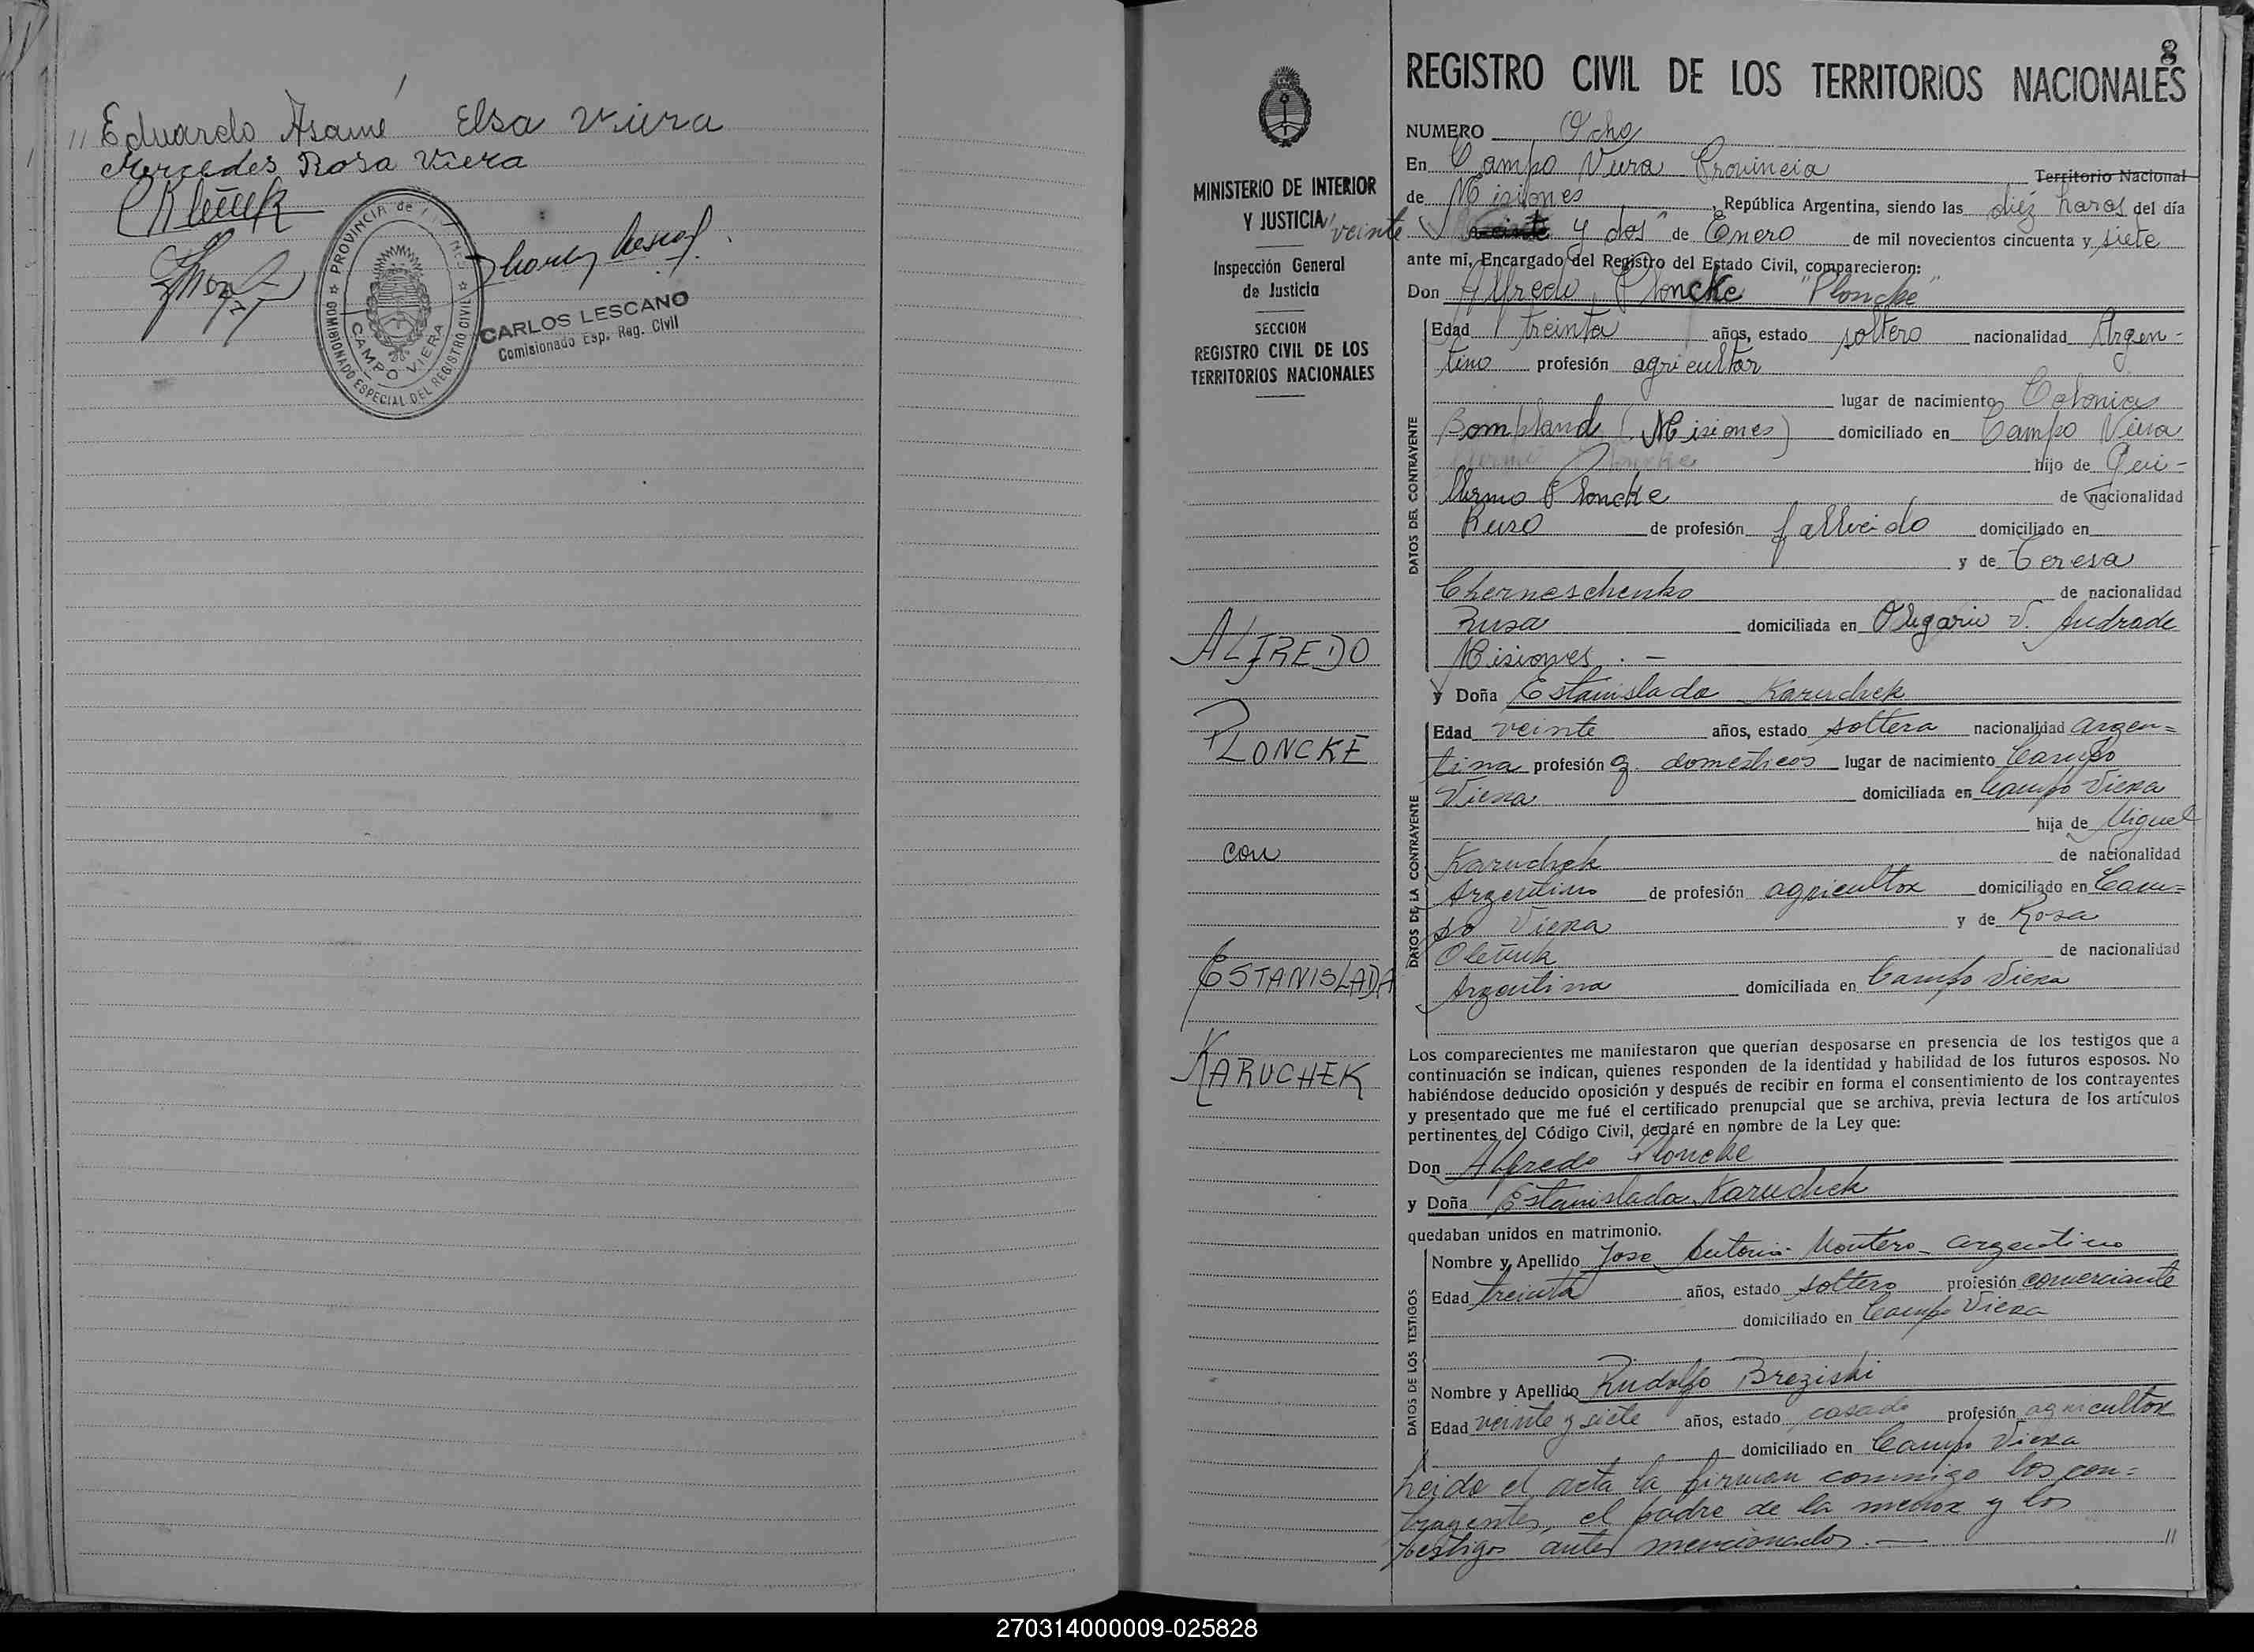 " Eduardo Asamé Elsa Viera
Mercedes Rosa Viera
PROVINCIA de MISIONES
COMISIONADO ESPECIAL DEL REGISTRO CIVIL
CAMPO VIERA
CARLOS LESCANO
Comisionado Esp. Reg. Civil
MINISTERIO DE INTERIOR
Y JUSTICIA
Inspección General
de Justicia
SECCION
REGISTRO CIVIL DE LOS
TERRITORIOS NACIONALES
ALFREDO
PLONCKE
con
ESTANISLADA
KARUCHEK
8
REGISTRO CIVIL DE LOS TERRITORIOS NACIONALES
NUMERO Ocho
En Campo Viera Provincia Territorio Nacional
de Misiones, República Argentina, siendo las diéz horas del día
"veinte y dos" de Enero de mil novecientos cincuenta y siete
ante mí, Encargado del Registro del Estado Civil, comparecieron:
Don Alfredo Ploncke "Ploncke"
DATOS DEL CONTRAYENTE
Edad treinta años, estado soltero nacionalidad Argen-
tino profesión agricultor
lugar de nacimiento Colonia
Bompland (Misiones) domiciliado en Campo Viera
hijo de Gui-
llermo Ploncke de nacionalidad
Ruso de profesión fallecido domiciliado en
y de Teresa
Cherneschenko de nacionalidad
Rusa domiciliada en Olegario V. Andrade
Misiones . —
y Doña Estanislada Karuchek
DATOS DE LA CONTRAYENTE
Edad veinte años, estado soltera nacionalidad argen=
tina profesión q. domésticos lugar de nacimiento Campo
Viera domiciliada en Campo Viera
hija de Miguel
Karuchek de nacionalidad
Argentino de profesión agricultor domiciliado en Cam=
po Viera y de Rosa
Oleiñuk de nacionalidad
Argentina domiciliada en Campo Viera
Los comparecientes me manifestaron que querían desposarse en presencia de los testigos que a
continuación se indican, quienes responden de la identidad y habilidad de los futuros esposos. No
habiéndose deducido oposición y después de recibir en forma el consentimiento de los contrayentes
y presentado que me fué el certificado prenupcial que se archiva, previa lectura de los artículos
pertinentes del Código Civil, declaré en nombre de la Ley que:
Don Alfredo Ploncke
y Doña Estanislada Karuchek
quedaban unidos en matrimonio.
DATOS DE LOS TESTIGOS
Nombre y Apellido Jose Antonio Montero - argentino
Edad treinta años, estado soltero profesión comerciante
domiciliado en Campo Viera
Nombre y Apellido Rudolfo Breziski
Edad veinte y siete años, estado casado profesión agricultor
domiciliado en Campo Viera
Leida el acta la firman conmigo los con=
trayentes, el padre de la menor y los
testigos antes mencionados. — "
270314000009-025828